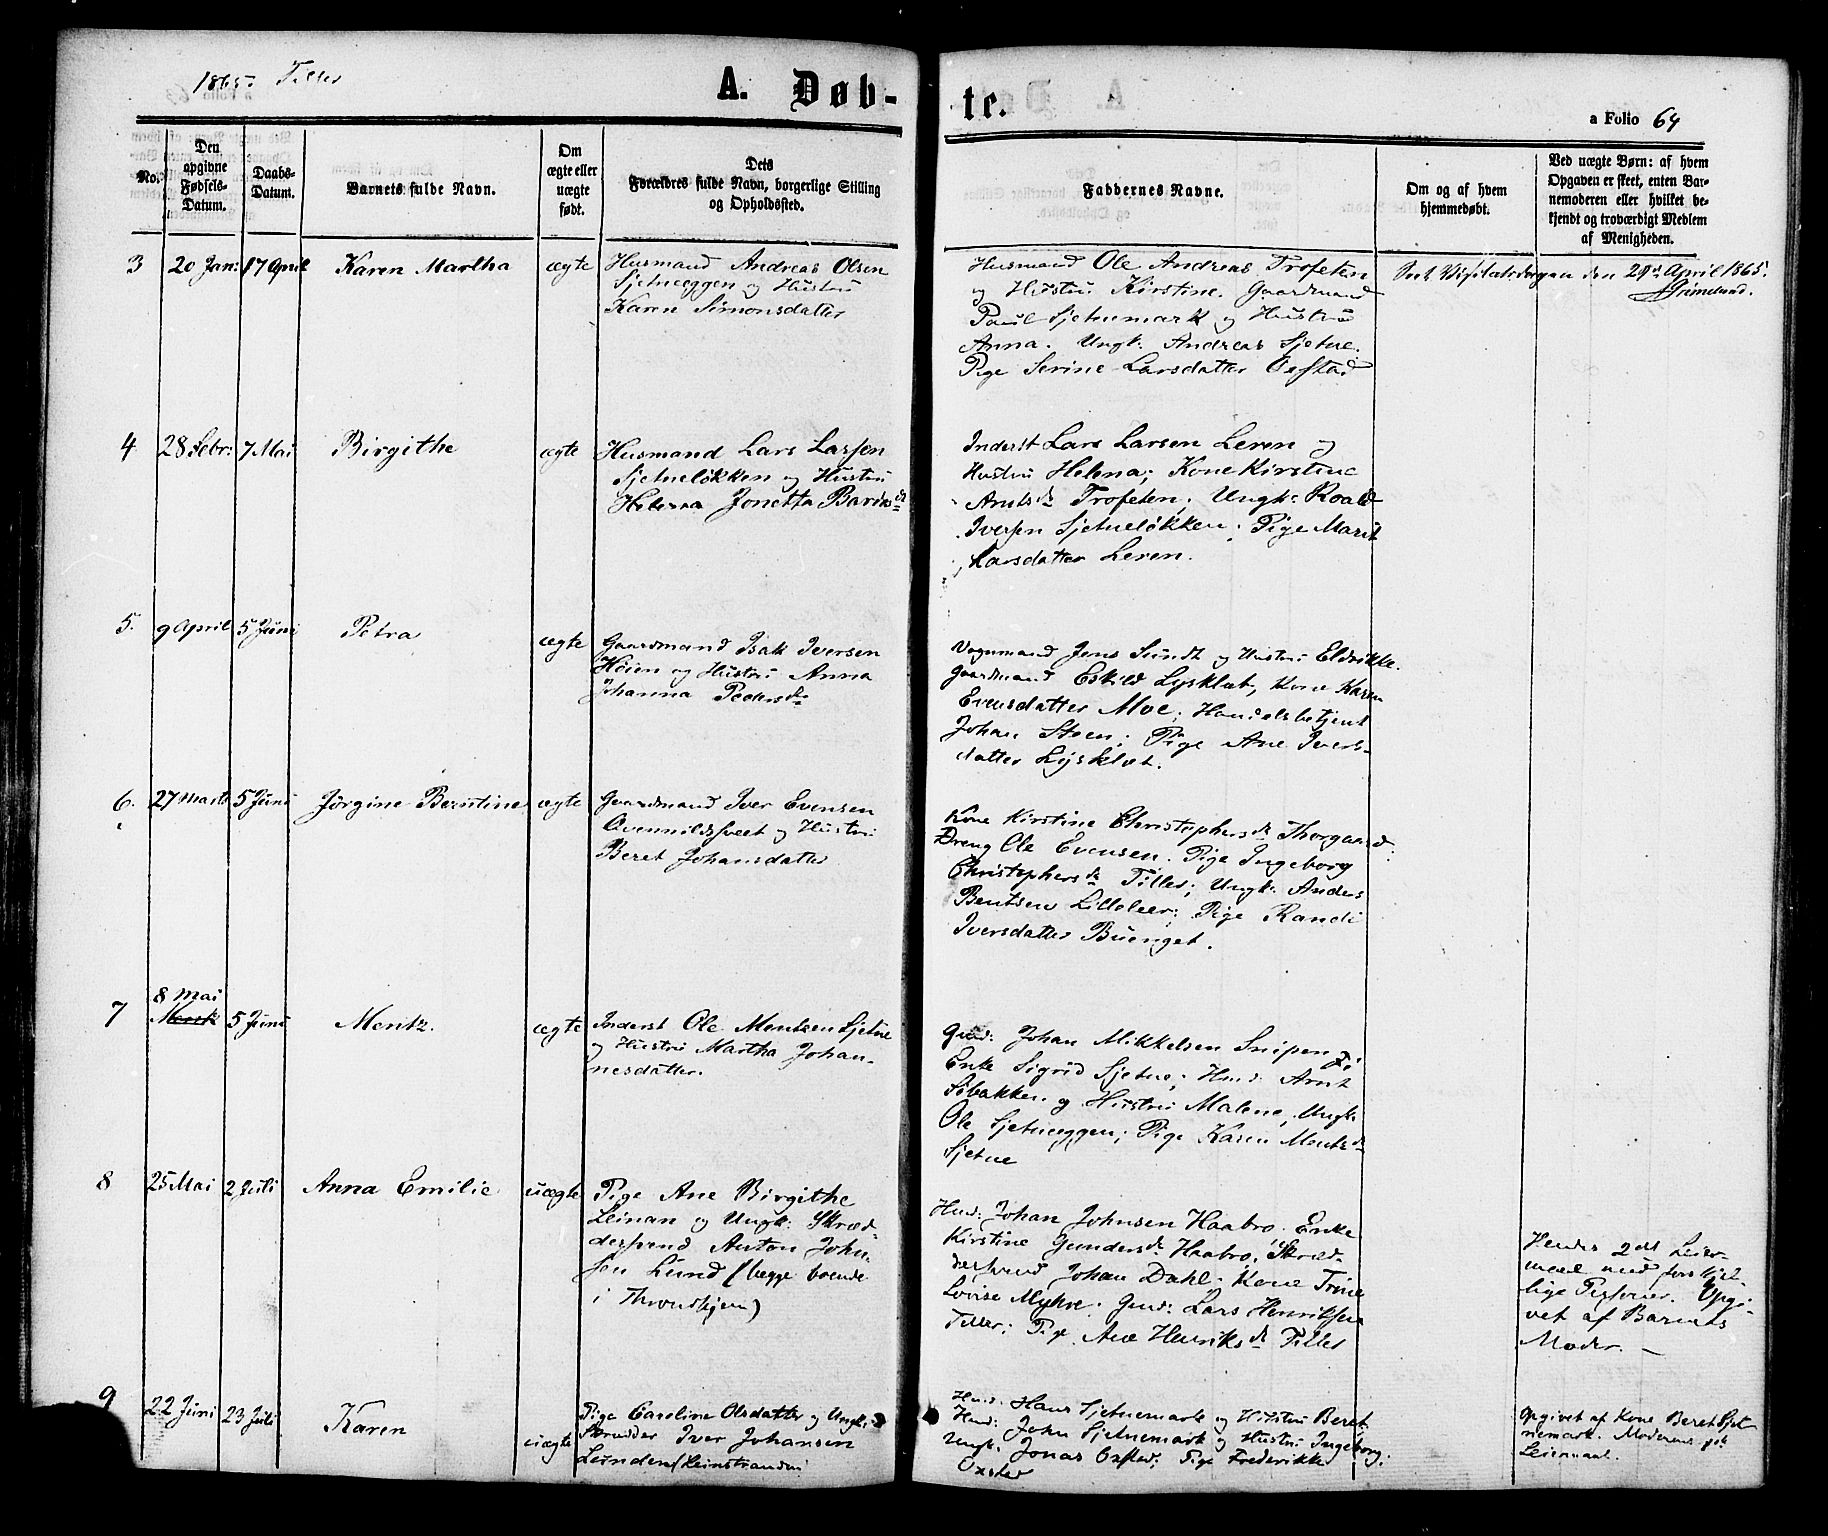 1865. Tiller
A. Døb-
No.
Den
opgivne
Fødsels-
Datum.
Daabs-
Datum.
Barnets fulde Navn.
Om
ægte eller
uægte
født.
Dets
Forældres fulde Navn, borgerlige Stilling
og Opholdssted.
3 20 Jan: 17 April Karen Martha ægte
Husmand Andreas Olsen
Sjetneeggen og Hustru
Karen Simonsdatter
4 28 Febr: 7 Mai Birgithe ægte
Husmand Lars Larsen
Sjetneløkken og Hustru
Helena Jonetta Bardsd
5. 9 April 5 Juni Petra ægte
Gaardmand Isak Iversen
Høien og Hustru Anna
Johanna Pedersd
6. 27 Marts 5 Juni Jørgine Berntine ægte
Gaardmand Iver Evensen
og Hustru
Beret Johansdatter
7 8 Mai 5 Juni Mentz. ægte
Inderst Ole Mentsen Sjetne
og Hustru Martha Johan-
nesdatter.
8 25 Mai 2 Juli Anna Emilie uægte
Pige Ane Birgithe
Leinan og Ungk: Skræd-
dersvend Anton John-
sen Lund (begge boende
i Throndhjem)
9 22 Juni 23 Juli Karen uægte
Pige Caroline Olsdatter og Ungk:
Skrædder Iver Johansen
Lunden (Leinstranden)
te.
a Folio 64
Faddernes Navne.
Om og af hvem
hjemmedøbt.
Ved uægte Børn: af hvem
Opgaven er skeet, enten Bar-
nemoderen eller hvilket be-
kjendt og troværdigt Medlem
af Menigheden.
Husmand Ole Andreas Trofeten
og Hustru Kirstine. Gaardmand
Paul Sjetnemark og Hustru
Anna. Ungk: Andreas Sjetne.
Pige Serine Larsdatter Oestad
den 29de April 1865.
Grimelund.
Inderst Lars Larsen Leren og
Hustru Helena; Kone Kirstine
Arntsd Trofeten; Ungk: Roald
Iversen Sjetneløkken; Pige Marit
Larsdatter Leren.
Vognmand Jens Sundt og Hustru Eldrikke.
Gaardmand Eskild Lysklæt, Kone Karen
Evensdatter Moe; Handelsbetjent
Johan Steen; Pige Ane Ivers-
datter Lysklæt.
Kone Kirstine Christophersd Thorgaard:
Dreng Ole Evensen. Pige Ingeborg
Christophersd Tiller; Ungk: Anders
Bentsen Lilleleer; Pige Randi
Iversdatter Buenget.
Gmd: Johan Mikkelsen Snipen
Enke Sigrid Sjetne; Hmd: Arnt
Søbakken og Hustru Malene, Ungk:
Ole Sjetneeggen; Pige Karen Mentsd
Sjetne
Hmd: Johan Johnsen Haabro. Enke
Kirstine Gundersd Haabro; Skræd-
dersvend Johan Dahl. Kone Trine
Lovise Myhre. Gmd: Lars Henriksen
Tiller; Pige Ane Henriksd Tiller
Hendes 2det Leier-
maal med forskjel-
lige Personer. Opgi-
vet af Barnets
Moder. —
Hmd: Hans Sjetnemark og Hustru Beret,
Hmd: John Sjetnemark og Hustru Ingeborg;
Ungk: Jonas Oxsted; Pige Frederikke
Oxsted
Opgivet af Kone Beret Sjet
nemark. Moderens 1ste
Leiermaal.